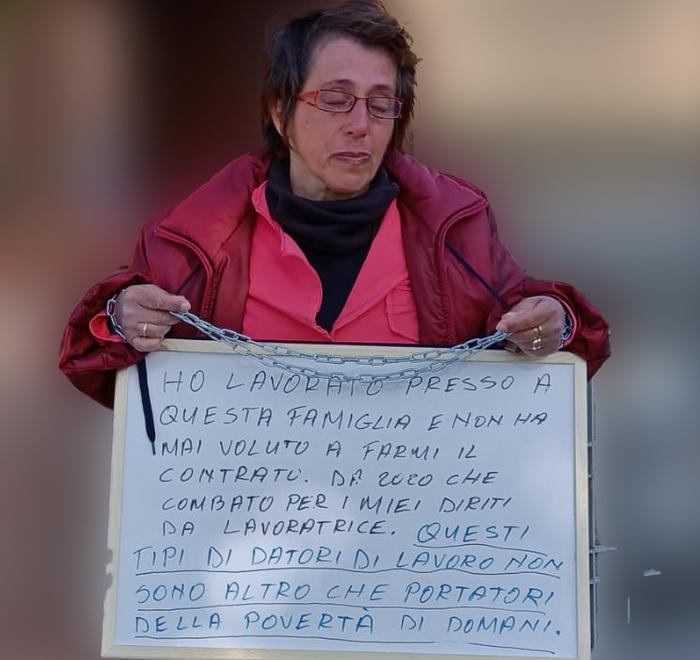 HO LAVORATO PRESSO A
QUESTA FAMIGLIA E NON HA
MAI VOLUTO A FARMI IL
CONTRATO. DA 2020 CHE
COMBATO PER I MIEI DIRITI
DA LAVORATRICE. QUESTI
TIPI DI DATORI DI LAVORO NON
SONO ALTRO CHE PORTATORI
DELLA POVERTÀ DI DOMANI.